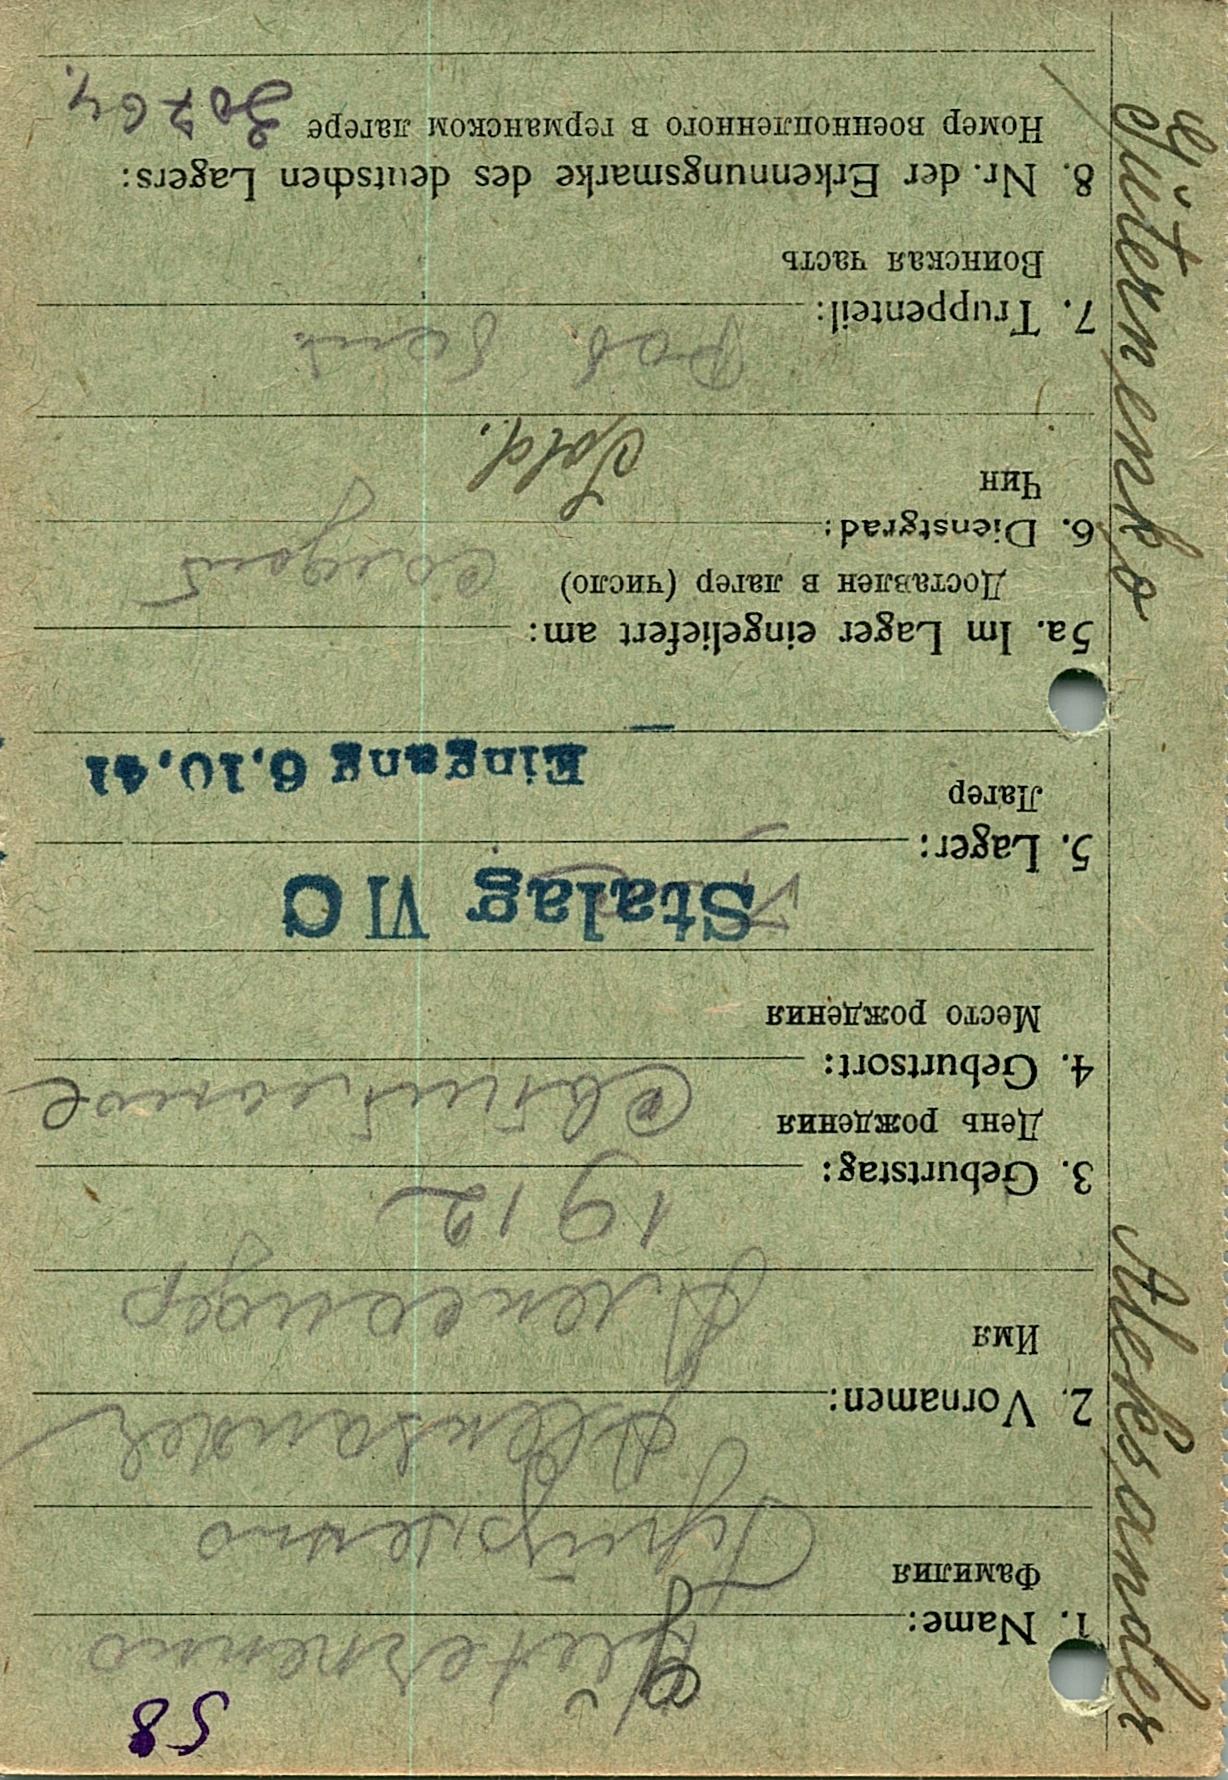 58
Güternenko Aleksander
1. Name: Güternenko
Фамилия
2. Vornamen: Aleksander
Имя Александр
3. Geburtstag: 1912
День рождения
4. Geburtsort:
Место рождения
Stalag VI C
5. Lager:
Лагер
Eingang 6.10.41
5a. Im Lager eingeliefert am:
Доставлен в лагер (число)
солдат
6. Dienstgrad:
Чин Sold.
Раб. бат.
7. Truppenteil:
Воинская часть
8. Nr. der Erkennungsmarke des deutschen Lagers:
Номер военнопленного в германском лагере 30764.